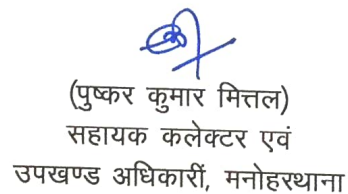 (पुष्कर कुमार मित्तल)
सहायक कलेक्टर एवं
उपखण्ड अधिकारीं, मनोहरथाना